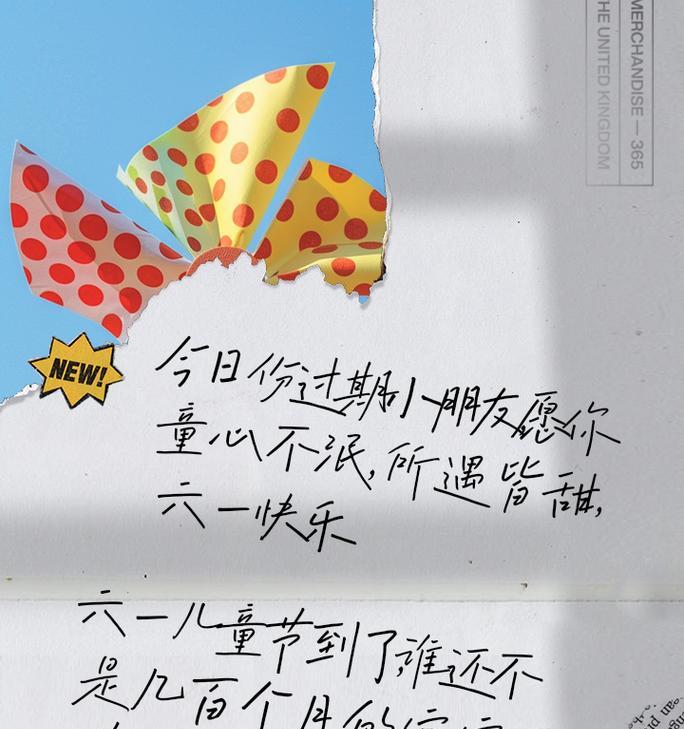 MERCHANDISE — 365
THE UNITED KINGDOM
NEW!
今日份过期小朋友愿你
童心不泯,所遇皆甜,
六一快乐
六一儿童节到了,谁还不
是几百个月的宝宝